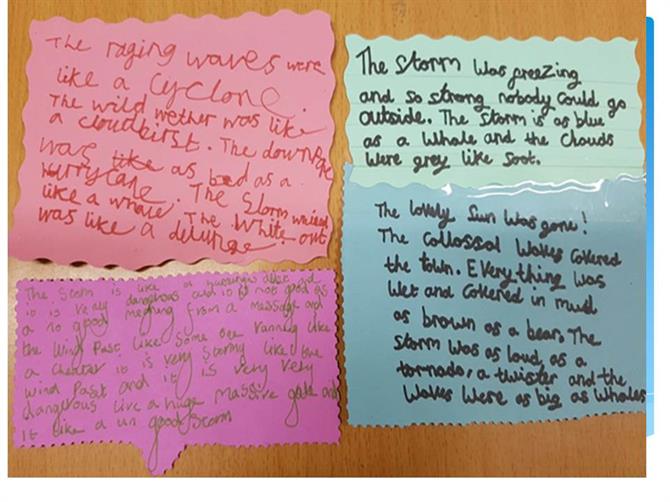 The raging waves were
like a Cyclone.
The wild wether was like
a cloudbirst. The down
was like as bad as a
Hurrycane. The Storm waived
like a whale. The White out
was like a deluge.
The Storm was freezing
and so strong nobody could go
outside. The storm is as blue
as a whale and the clouds
were grey like soot.
The Storm is like a
it is very dangerous and it is not good as
a no good from a message and
the wind Past like some one running like
a it is very stormy like the
wind past and it is very very
dangerous like a huge massive gale and
it like a un good storm
The lovely Sun was gone!
The Collossal Waves covered
the town. Everything was
wet and covered in mud
as brown as a bear. The
storm was as loud as a
tornado, a twister and the
waves were as big as whales